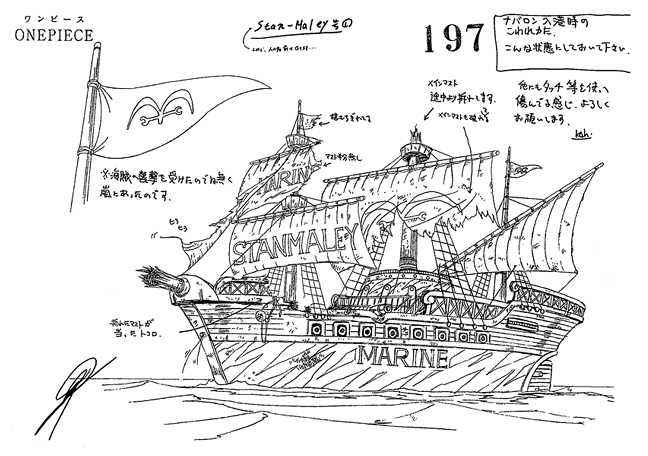 ワンピース
ONEPIECE
Stan-Maley号①
197
ナバロン入港時の
こわれ方だ.
こんな状態にしておいて下さい.
他にもタッチ等を使い
傷んでる感じ、よろしく
お願いします.
メインマスト
途中より折れます.
※海賊の襲撃を受けたのでは無く
嵐にあったのです.
ヒラ
ヒラ
折れたマストが
当ったトコロ.
MARIN
STANMALEY
MARINE